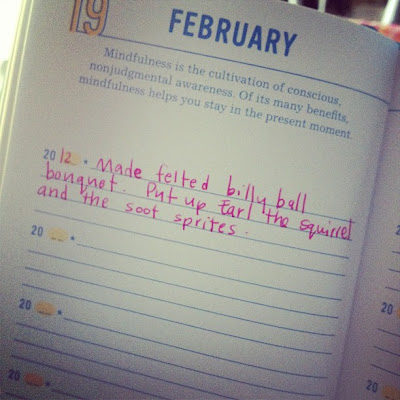 19
FEBRUARY
Mindfulness is the cultivation of conscious,
nonjudgmental awareness. Of its many benefits,
mindfulness helps you stay in the present moment.
2012 • Made felted billy ball
bouquet. Put up Earl the squirrel
and the soot sprites.
20 •
20 •
20 •
2
20
20